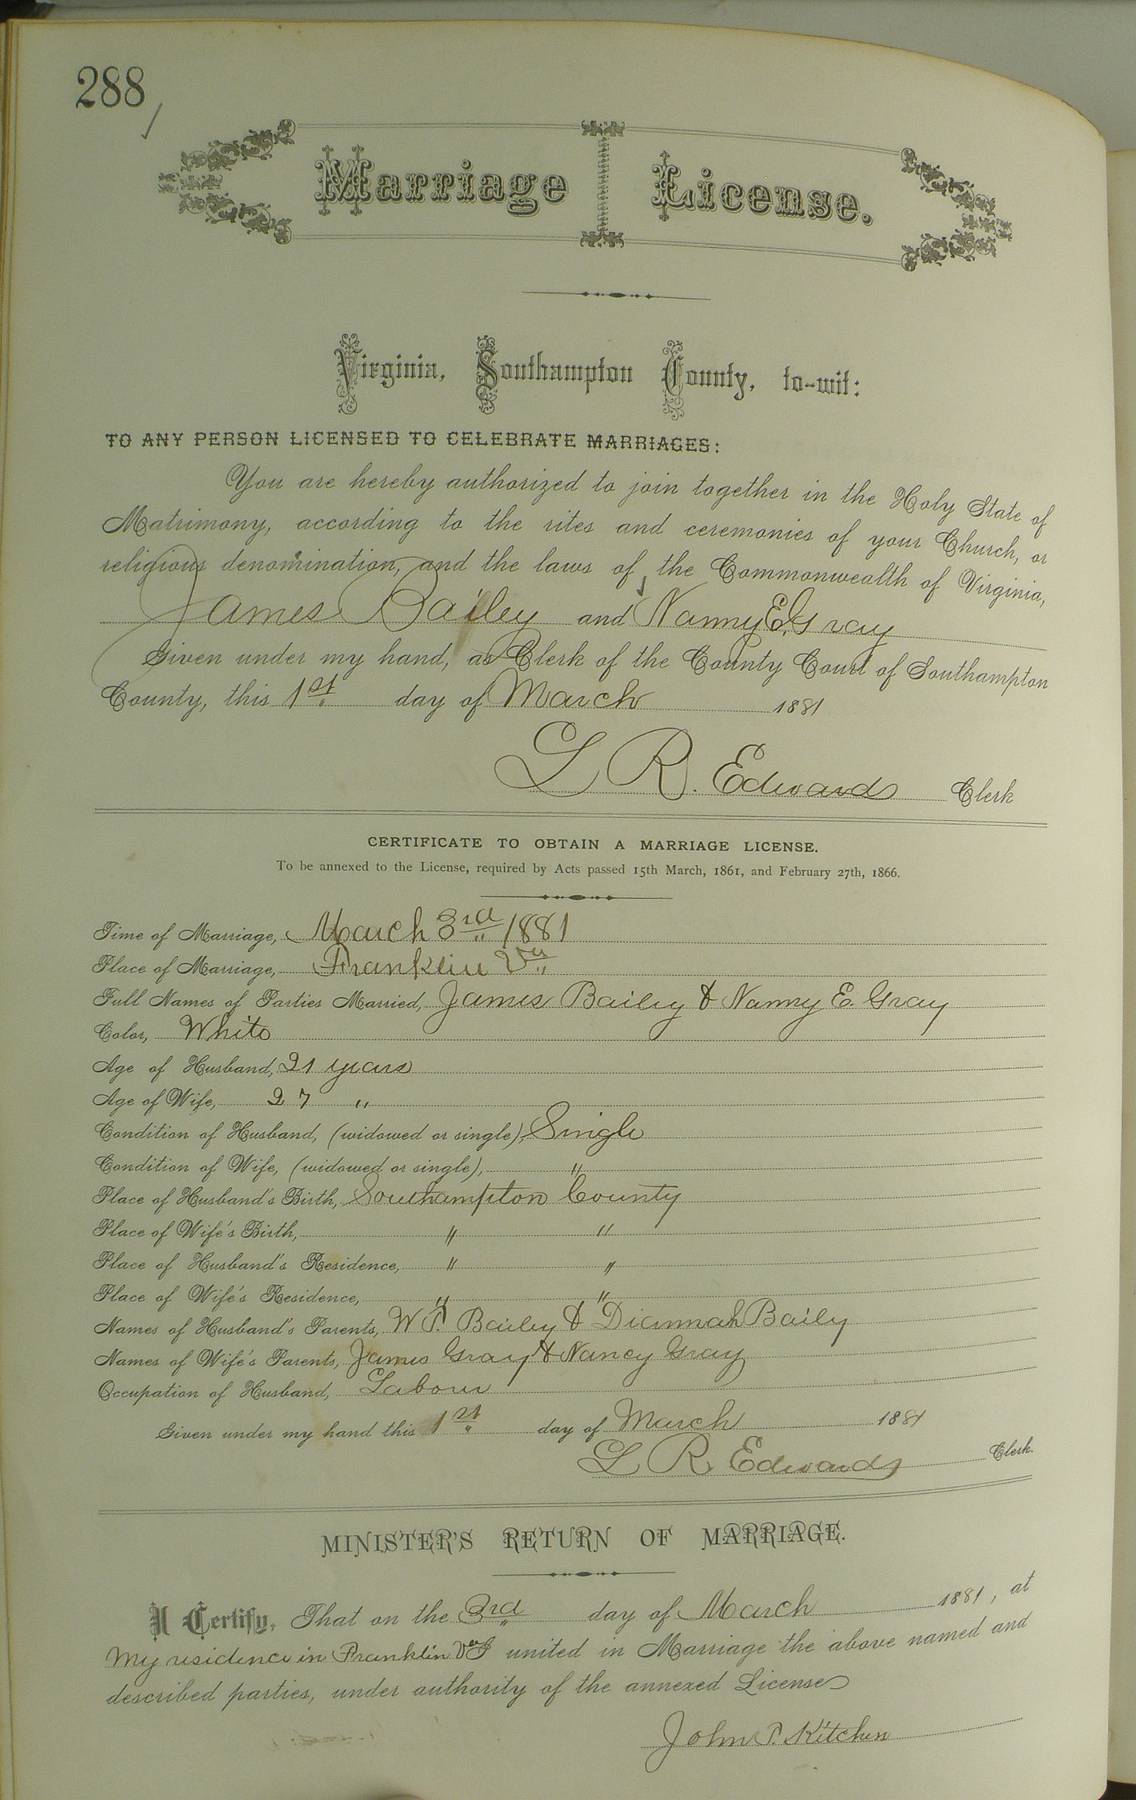 288
Marriage License.
Virginia, Southampton County, to-wit:
TO ANY PERSON LICENSED TO CELEBRATE MARRIAGES:
You are hereby authorized to join together in the Holy State of
Matrimony, according to the rites and ceremonies of your Church, or
religious denomination, and the laws of the Commonwealth of Virginia,
James Bailey and Nanny E. Gray
Given under my hand, as Clerk of the County Court of Southampton
County, this 1st day of March 1881
L R. Edwards Clerk
CERTIFICATE TO OBTAIN A MARRIAGE LICENSE.
To be annexed to the License, required by Acts passed 15th March, 1861, and February 27th, 1866.
Time of Marriage, March 3rd 1881
Place of Marriage, Franklin Va
Full Names of Parties Married, James Baily & Nanny E. Gray
Color, White
Age of Husband, 21 years
Age of Wife, 27 "
Condition of Husband, (widowed or single), Single
Condition of Wife, (widowed or single), "
Place of Husband's Birth, Southampton County
Place of Wife's Birth, " "
Place of Husband's Residence, " "
Place of Wife's Residence, " "
Names of Husband's Parents, W P. Bailey & Diannah Baily
Names of Wife's Parents, James Gray & Nancy Gray
Occupation of Husband, Labour
Given under my hand this 1st day of March 1881
L R Edwards Clerk.
MINISTER'S RETURN OF MARRIAGE.
I Certify, That on the 3rd day of March 1881, at
My residence in Franklin Va I united in Marriage the above named and
described parties, under authority of the annexed License
John P. Kitchen